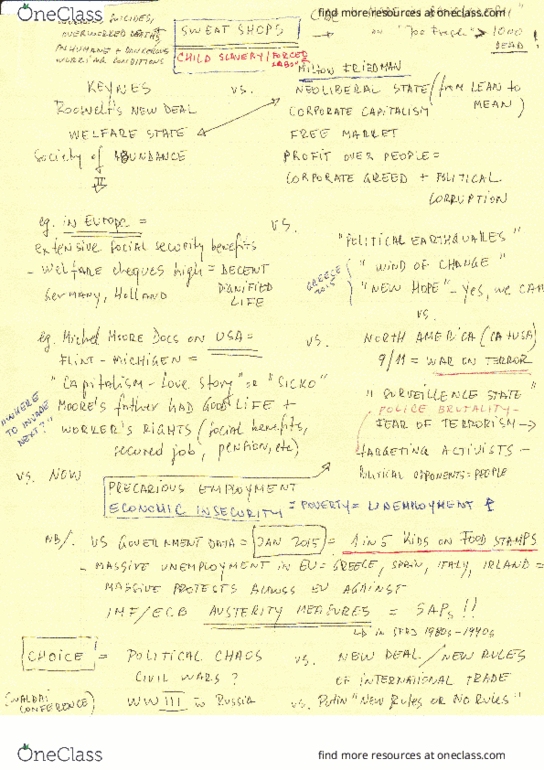 OneClass
find more resources at oneclass.com
SUICIDES,
SWEAT SHOPS → on "Joe Fresh" > 1000 DEAD!
OVERWORKED DEATHS
INHUMANE + DANGEROUS
WORKING CONDITIONS
CHILD SLAVERY/FORCED LABOUR
MILTON FRIEDMAN
KEYNES vs. NEOLIBERAL STATE (from LEAN to MEAN)
Roosvelt's NEW DEAL CORPORATE CAPITALISM
WELFARE STATE FREE MARKET
Society of ABUNDANCE PROFIT OVER PEOPLE =
CORPORATE GREED + POLITICAL
CORRUPTION
eg. in EUROPE = vs. "POLITICAL EARTHQUAKES"
extensive social security benefits "WIND OF CHANGE"
- Welfare cheques high = DECENT DIGNIFIED LIFE
Germany, Holland
GREESE 2015 "NEW HOPE" - Yes, we CAN
vs.
eg. Michel Moore Docs on USA = vs. NORTH AMERICA (CA+USA)
FLINT - MICHIGEN = 9/11 = WAR ON TERROR
"Capitalism - Love Story" or "SICKO" "SURVEILLENCE STATE"
"WHERE TO INVADE NEXT?"
Moore's father HAD GOOD LIFE + POLICE BRUTALITY -
WORKER'S RIGHTS (social benefits, FEAR OF TERRORISM →
secured job, pension, etc) TARGETING ACTIVISTS -
POLITICAL OPPONENTS = PEOPLE
vs. NOW
PRECARIOUS EMPLOYMENT
ECONOMIC INSECURITY = POVERTY = UNEMPLOYMENT
NB/. US GOVERNMENT DATA = JAN 2015 = 1 in 5 KIDS ON FOOD STAMPS
- MASSIVE UNEMPLOYMENT IN EU = GREECE, SPAIN, ITALY, IRLAND =
MASSIVE PROTESTS ACROSS EU AGAINST
IMF/ECB AUSTERITY MEASURES = SAPs!!
in 1980s-1990s
CHOICE = POLITICAL CHAOS vs. NEW DEAL/NEW RULES
CIVIL WARS? OF INTERNATIONAL TRADE
(VALDAI CONFERENCE) WW III in Russia vs. Putin "New Rules or No Rules"
OneClass
find more resources at oneclass.com